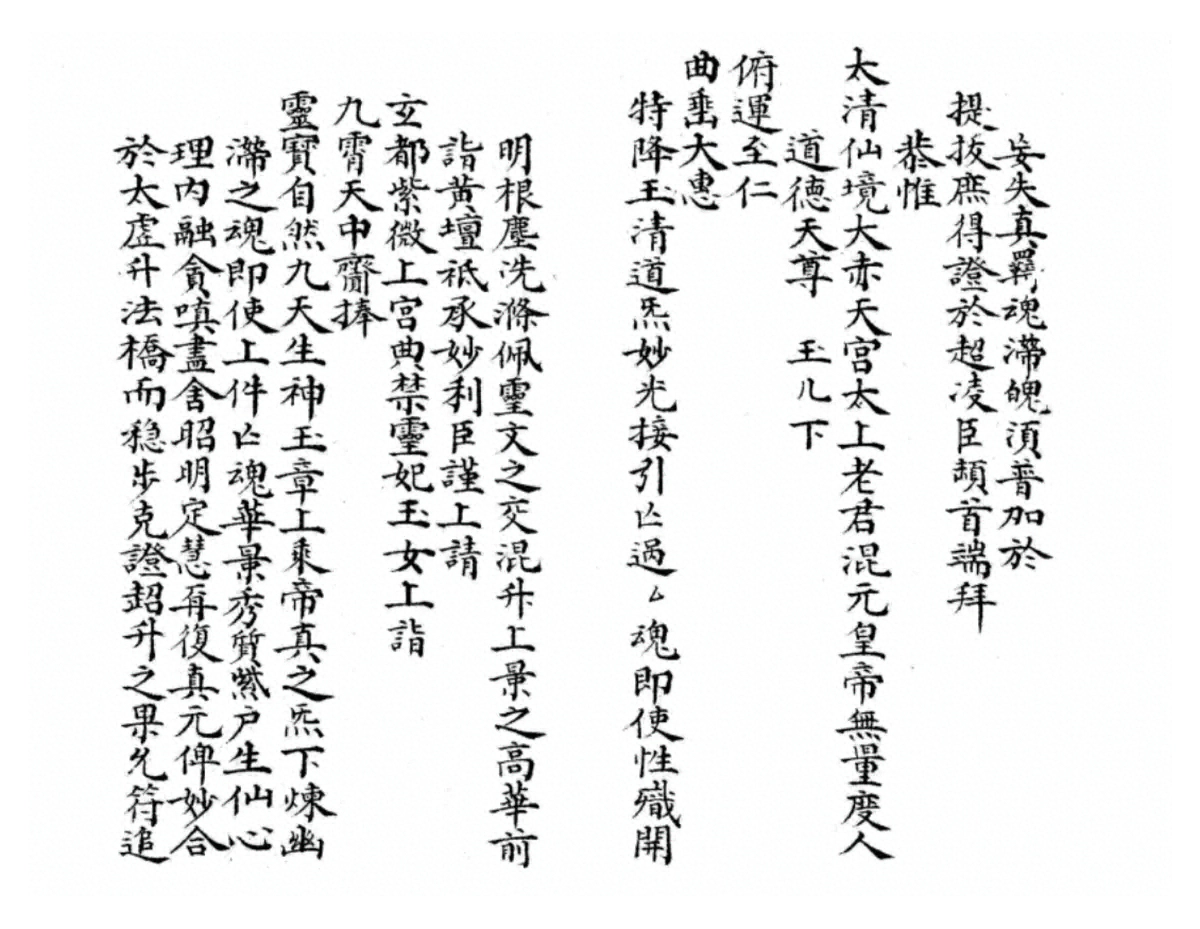 妄失真羈魂滯魄湏普加於
提拔庶得證於超凌臣頼首端拜
恭惟
太清仙境大赤天宮太上老君混元皇帝無量度人
道德天尊　玉几下
俯運至仁
曲垂大惠
特降玉清道炁妙光接引亡過厶魂即使性識開
明根塵洗滌佩靈文之交混升上景之高華前
詣黄壇祇承妙利臣謹上請
玄都紫微上宮典禁靈妃玉女上詣
九霄天中齎捧
靈寶自然九天生神玉章上乘帝真之炁下煉幽
滯之魂即使上件亡魂華景秀質紫户生仙心
理内融貪嗔盡舍昭明定慧再復真元俾妙合
於太虛升法橋而穏步克證超升之果允符追